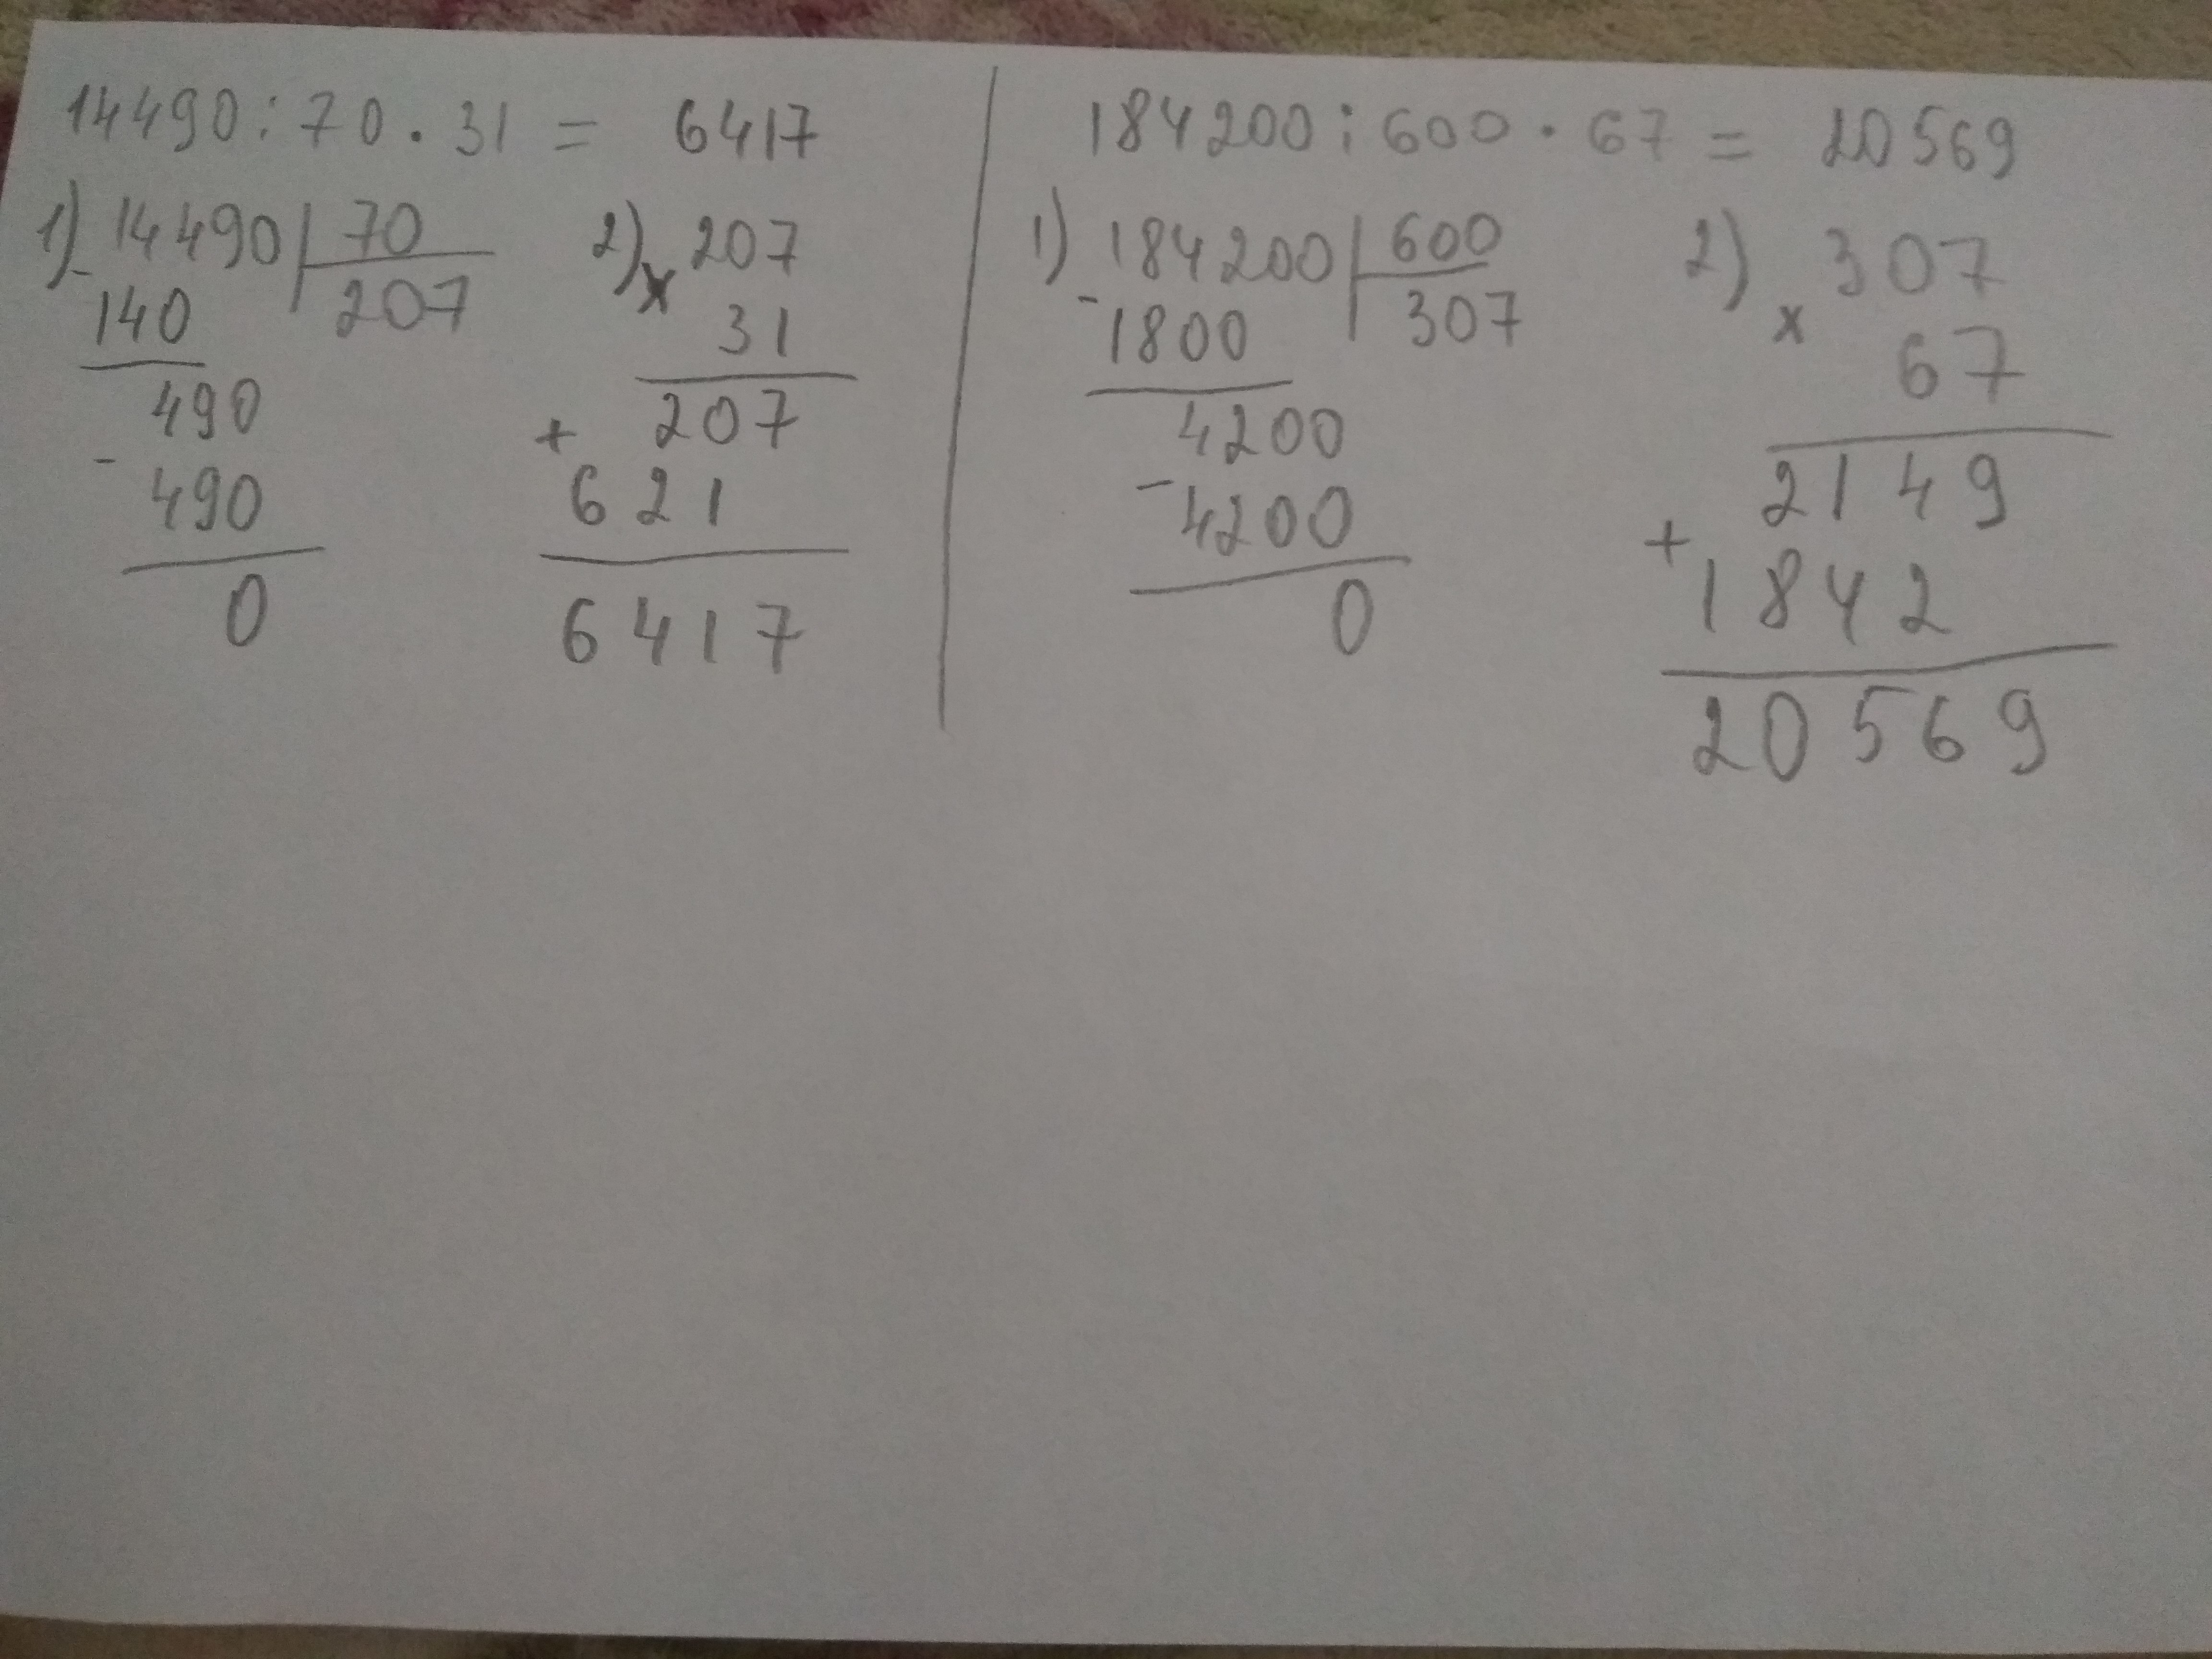 14490:70·31 = 6417
1) 14490 | 70
- 140 207
490
- 490
0
2) x 207
31
207
+ 621
6417
184200:600·67 = 20569
1) 184200 | 600
- 1800 307
4200
- 4200
0
2) 307
x 67
2149
+ 1842
20569